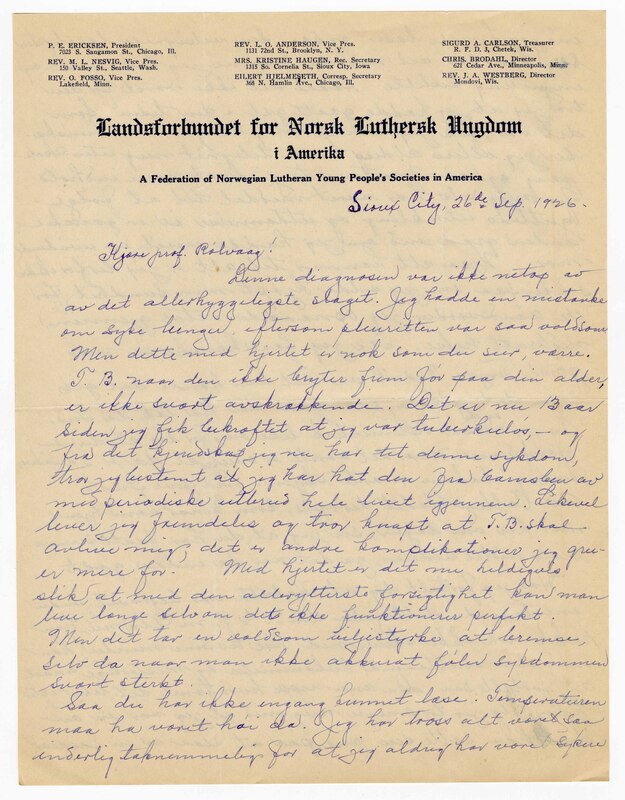 P. E. ERICKSEN, President
7023 S. Sangamon St., Chicago, Ill.
REV. M. L. NESVIG, Vice Pres.
150 Valley St., Seattle, Wash.
REV. O. FOSSO, Vice Pres.
Lakefield, Minn.
REV. L. O. ANDERSON, Vice Pres.
1131 72nd St., Brooklyn, N. Y.
MRS. KRISTINE HAUGEN, Rec. Secretary
1315 So. Cornelia St., Sioux City, Iowa
EILERT HJELMESETH, Corresp. Secretary
368 N. Hamlin Ave., Chicago, Ill.
SIGURD A. CARLSON, Treasurer
R. F. D. 3, Chetek, Wis.
CHRIS. BRODAHL, Director
627 Cedar Ave., Minneapolis, Minn.
REV. J. A. WESTBERG, Director
Mondovi, Wis.
Landsforbundet for Norsk Luthersk Ungdom
i Amerika
A Federation of Norwegian Lutheran Young People's Societies in America
Sioux City, 26de Sep. 1926.
Kjære prof. Rølvaag!
Denne diagnosen var ikke netop av
av det allerhyggeligste slaget. Jeg hadde en mistanke
om syke lunger, eftersom pleuritten var saa voldsom.
Men dette med hjertet er nok som du sier, værre.
T. B. naar den ikke bryter frem før paa din alder,
er ikke svært avskrækkende. Det er nu 13 aar
siden jeg fik bekræftet at jeg var tuberkuløs, – og
fra det kjendskap jeg nu har til denne sykdom,
tror jeg bestemt at jeg har hat den fra barnsben av
med periodiske utbrud hele livet igjennem. Likevel
lever jeg fremdeles og tror knapt at T. B. skal
avlive mig; det er andre komplikationer jeg gru-
er mere for. Med hjertet er det nu heldigvis
slik at med den allerytterste forsigtighet kan man
leve længe selv om det ikke funktionerer perfekt.
Men det tar en voldsom viljestyrke at bremse,
selv da naar man ikke akkurat føler sykdommen
svært sterkt.
Saa du har ikke engang kunnet læse. Temperaturen
maa ha været høi da. Jeg har tross alt været saa
inderlig taknemmelig for at jeg aldrig har været sykere